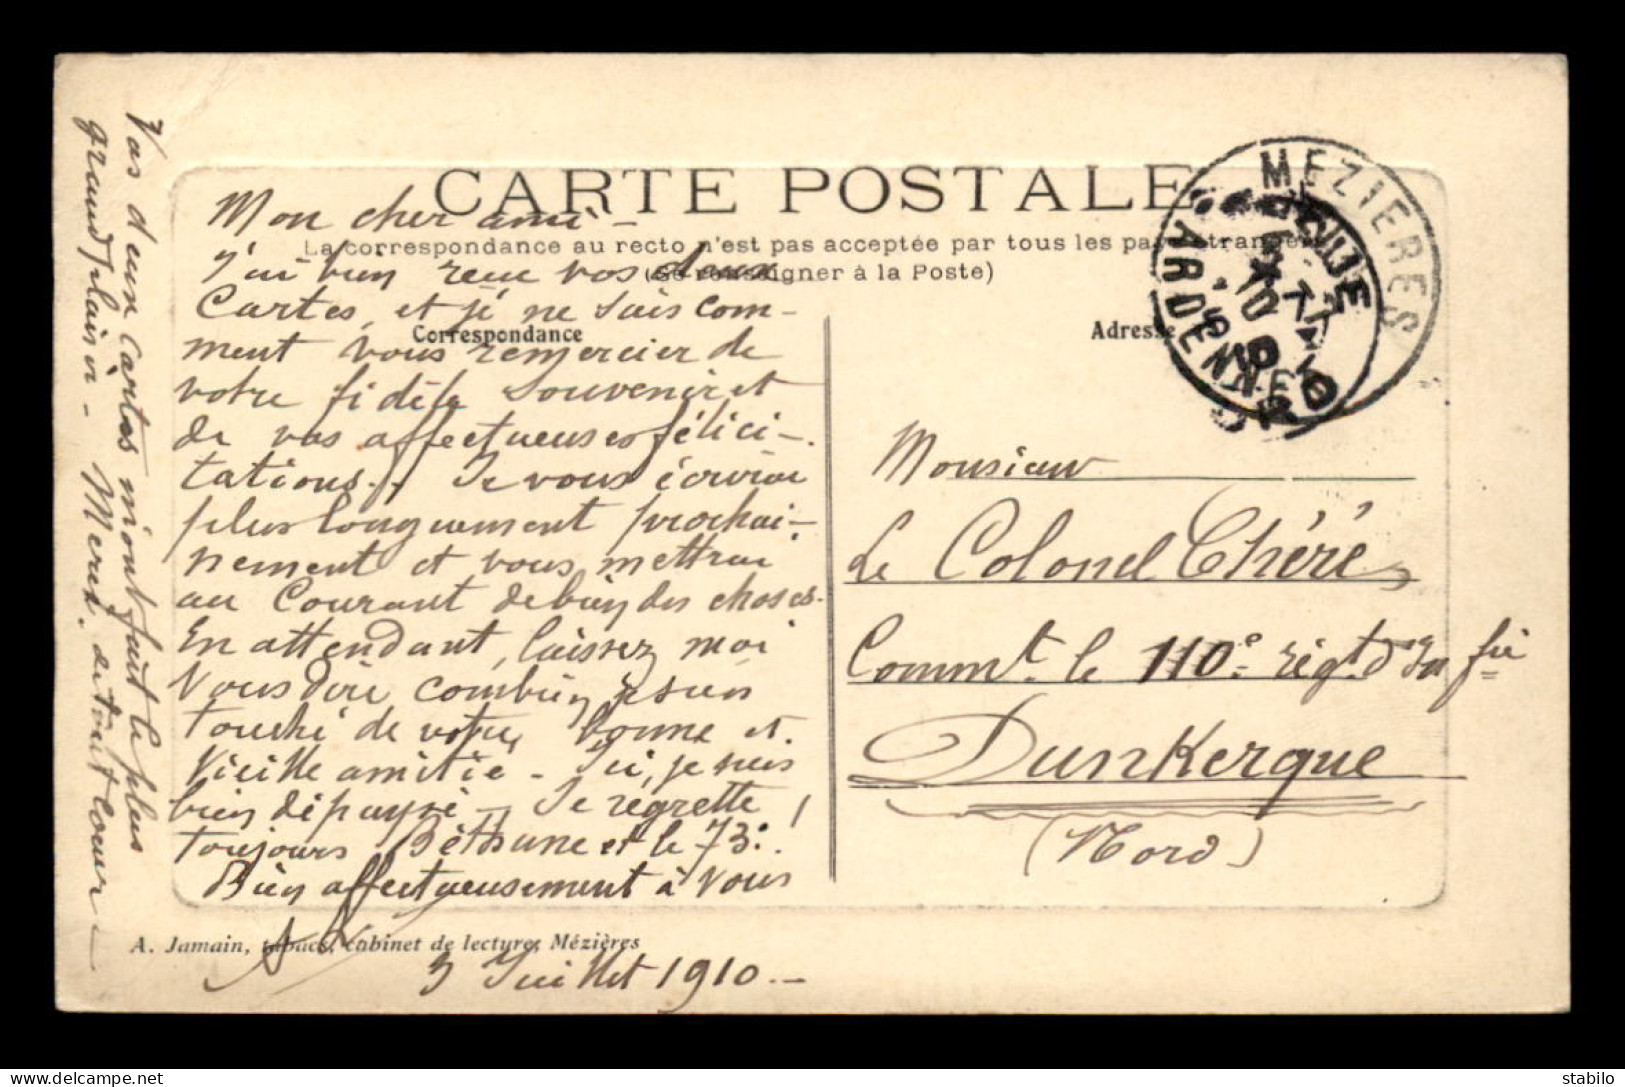 CARTE POSTALE
La correspondance au recto n'est pas acceptée par tous les pays étrangers
(Se renseigner à la Poste)
Correspondance
Adresse
MEZIERES
ARDENNES
Mon cher ami -
J'ai bien reçu vos deux
Cartes, et je ne sais com-
ment vous remercier de
votre fidèle souvenir et
de vos affectueuses félici-
tations. Je vous écrirai
plus longuement prochai-
nement et vous mettrai
au Courant de bien des choses.
En attendant, laissez moi
Vous dire combien je suis
touché de votre bonne et
Vieille amitié - Ici, je suis
bien dépaysé - Je regrette
toujours Béthune et le 73e!
Bien affectueusement à vous
3 Juillet 1910 --
Vos deux cartes m'ont fait le plus
grand plaisir - Merci de tout coeur -
Monsieur
Le Colonel Chéré
Commt le 110e régt d'Infie
Dunkerque
(Nord)
A. Jamain, tabacs, cabinet de lecture, Mézières
delcampe.net
stabilo